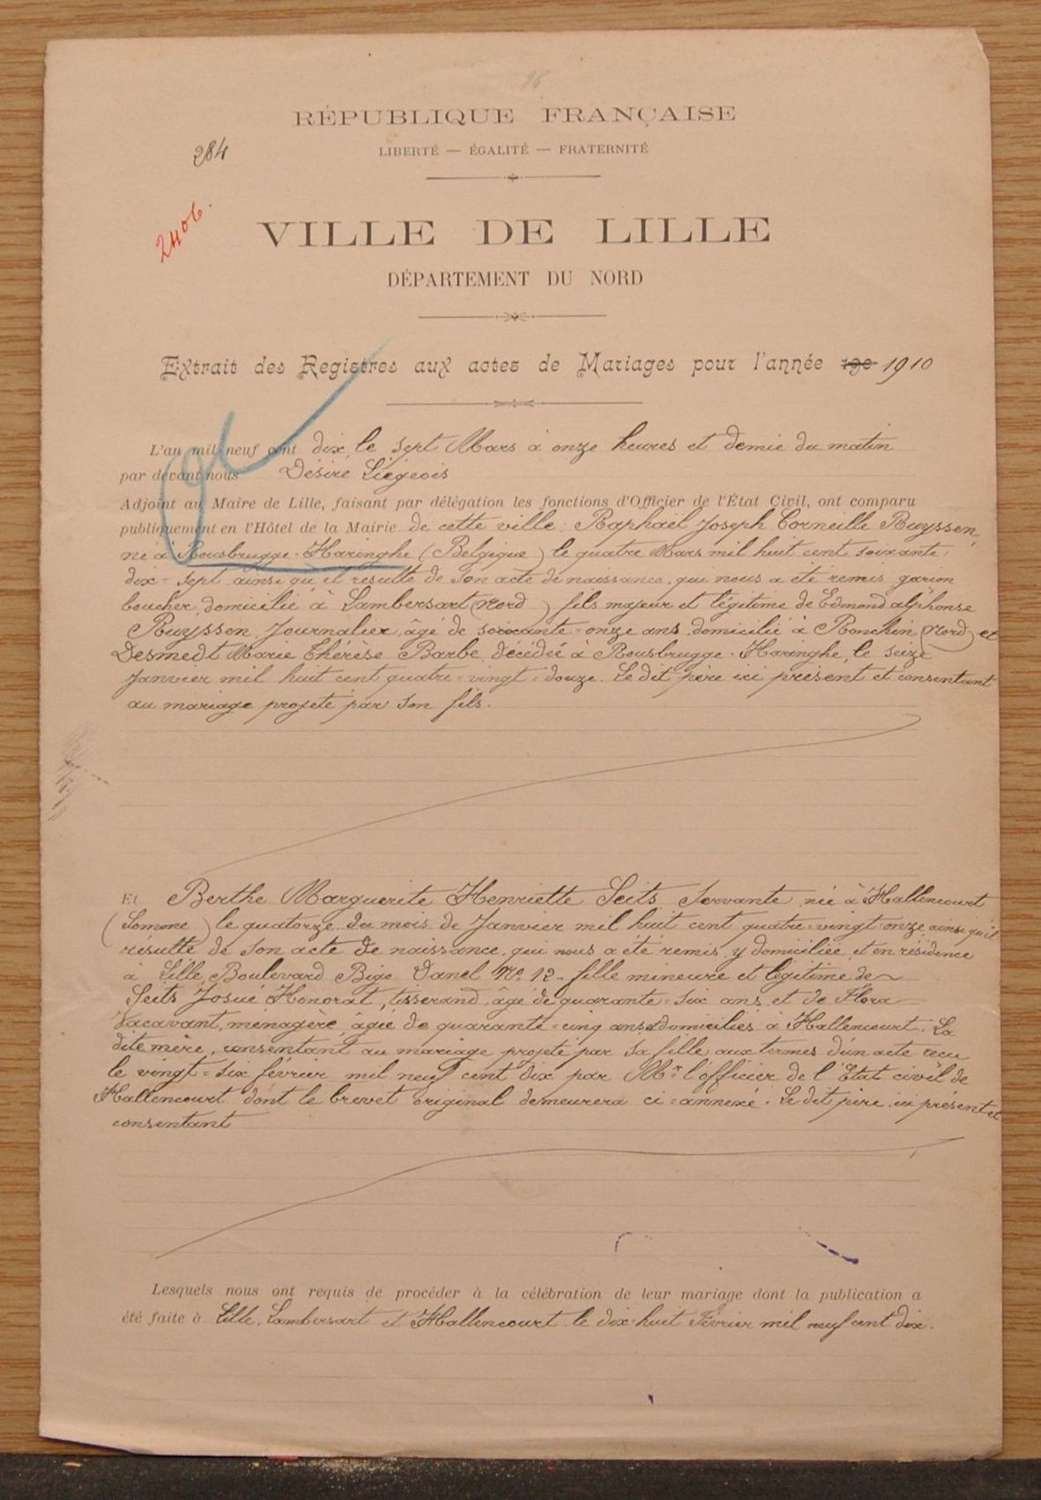 RÉPUBLIQUE FRANÇAISE
284
LIBERTÉ — ÉGALITÉ — FRATERNITÉ
2406.
VILLE DE LILLE
DÉPARTEMENT DU NORD
Extrait des Registres aux actes de Mariages pour l'année 190 1910
L'an mil neuf cent dix, le sept Mars à onze heures et demie du matin
par devant nous Désiré Liegeois
Adjoint au Maire de Lille, faisant par délégation les fonctions d'Officier de l'État Civil, ont comparu
publiquement en l'Hôtel de la Mairie de cette ville : Raphael Joseph Corneille Ruyssen,
né à Rousbrugge-Haringhe (Belgique) le quatre Mars mil huit cent soixante-
dix-sept, ainsi qu'il résulte de son acte de naissance, qui nous a été remis, garçon
boucher, domicilié à Lambersart (Nord) fils majeur et légitime de Edmond alphonse
Ruyssen, Journalier, âgé de soixante-onze ans, domicilié à Ronchin (Nord) et
Desmedt Marie Thérèse Barbe, décédée à Rousbrugge-Haringhe, le seize
Janvier mil huit cent quatre-vingt-douze. Le dit père ici présent et consentant
au mariage projeté par son fils.
Et Berthe Marguerite Henriette Seits, Servante, née à Hallencourt
(Somme) le quatorze du mois de Janvier mil huit cent quatre-vingt-onze ainsi qu'il
résulte de son acte de naissance, qui nous a été remis, y domiciliée, et en résidence
à Lille, Boulevard Bigo Danel No 12, fille mineure et légitime de
Seits Josué Honorat, tisserand, âgé de quarante-six ans, et de Flora
Vacavant, ménagère, âgée de quarante-cinq ans, domiciliés à Hallencourt. La
dite mère, consentant au mariage projeté par sa fille aux termes d'un acte reçu
le vingt-six février mil neuf cent dix par Mr l'officier de l'Etat civil de
Hallencourt dont le brevet original demeurera ci-annexé. Le dit père ici présent et
consentant
Lesquels nous ont requis de procéder à la célébration de leur mariage dont la publication a
été faite à Lille, Lambersart et Hallencourt le dix-huit Février mil neuf cent dix.